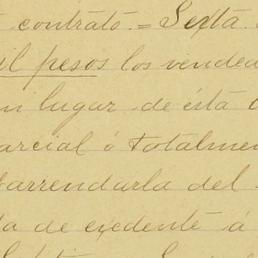 contrato.= Sexta
il pesos los vended
en lugar de ésta
arcial ó totalmen
arrendarla del
da de exedente á